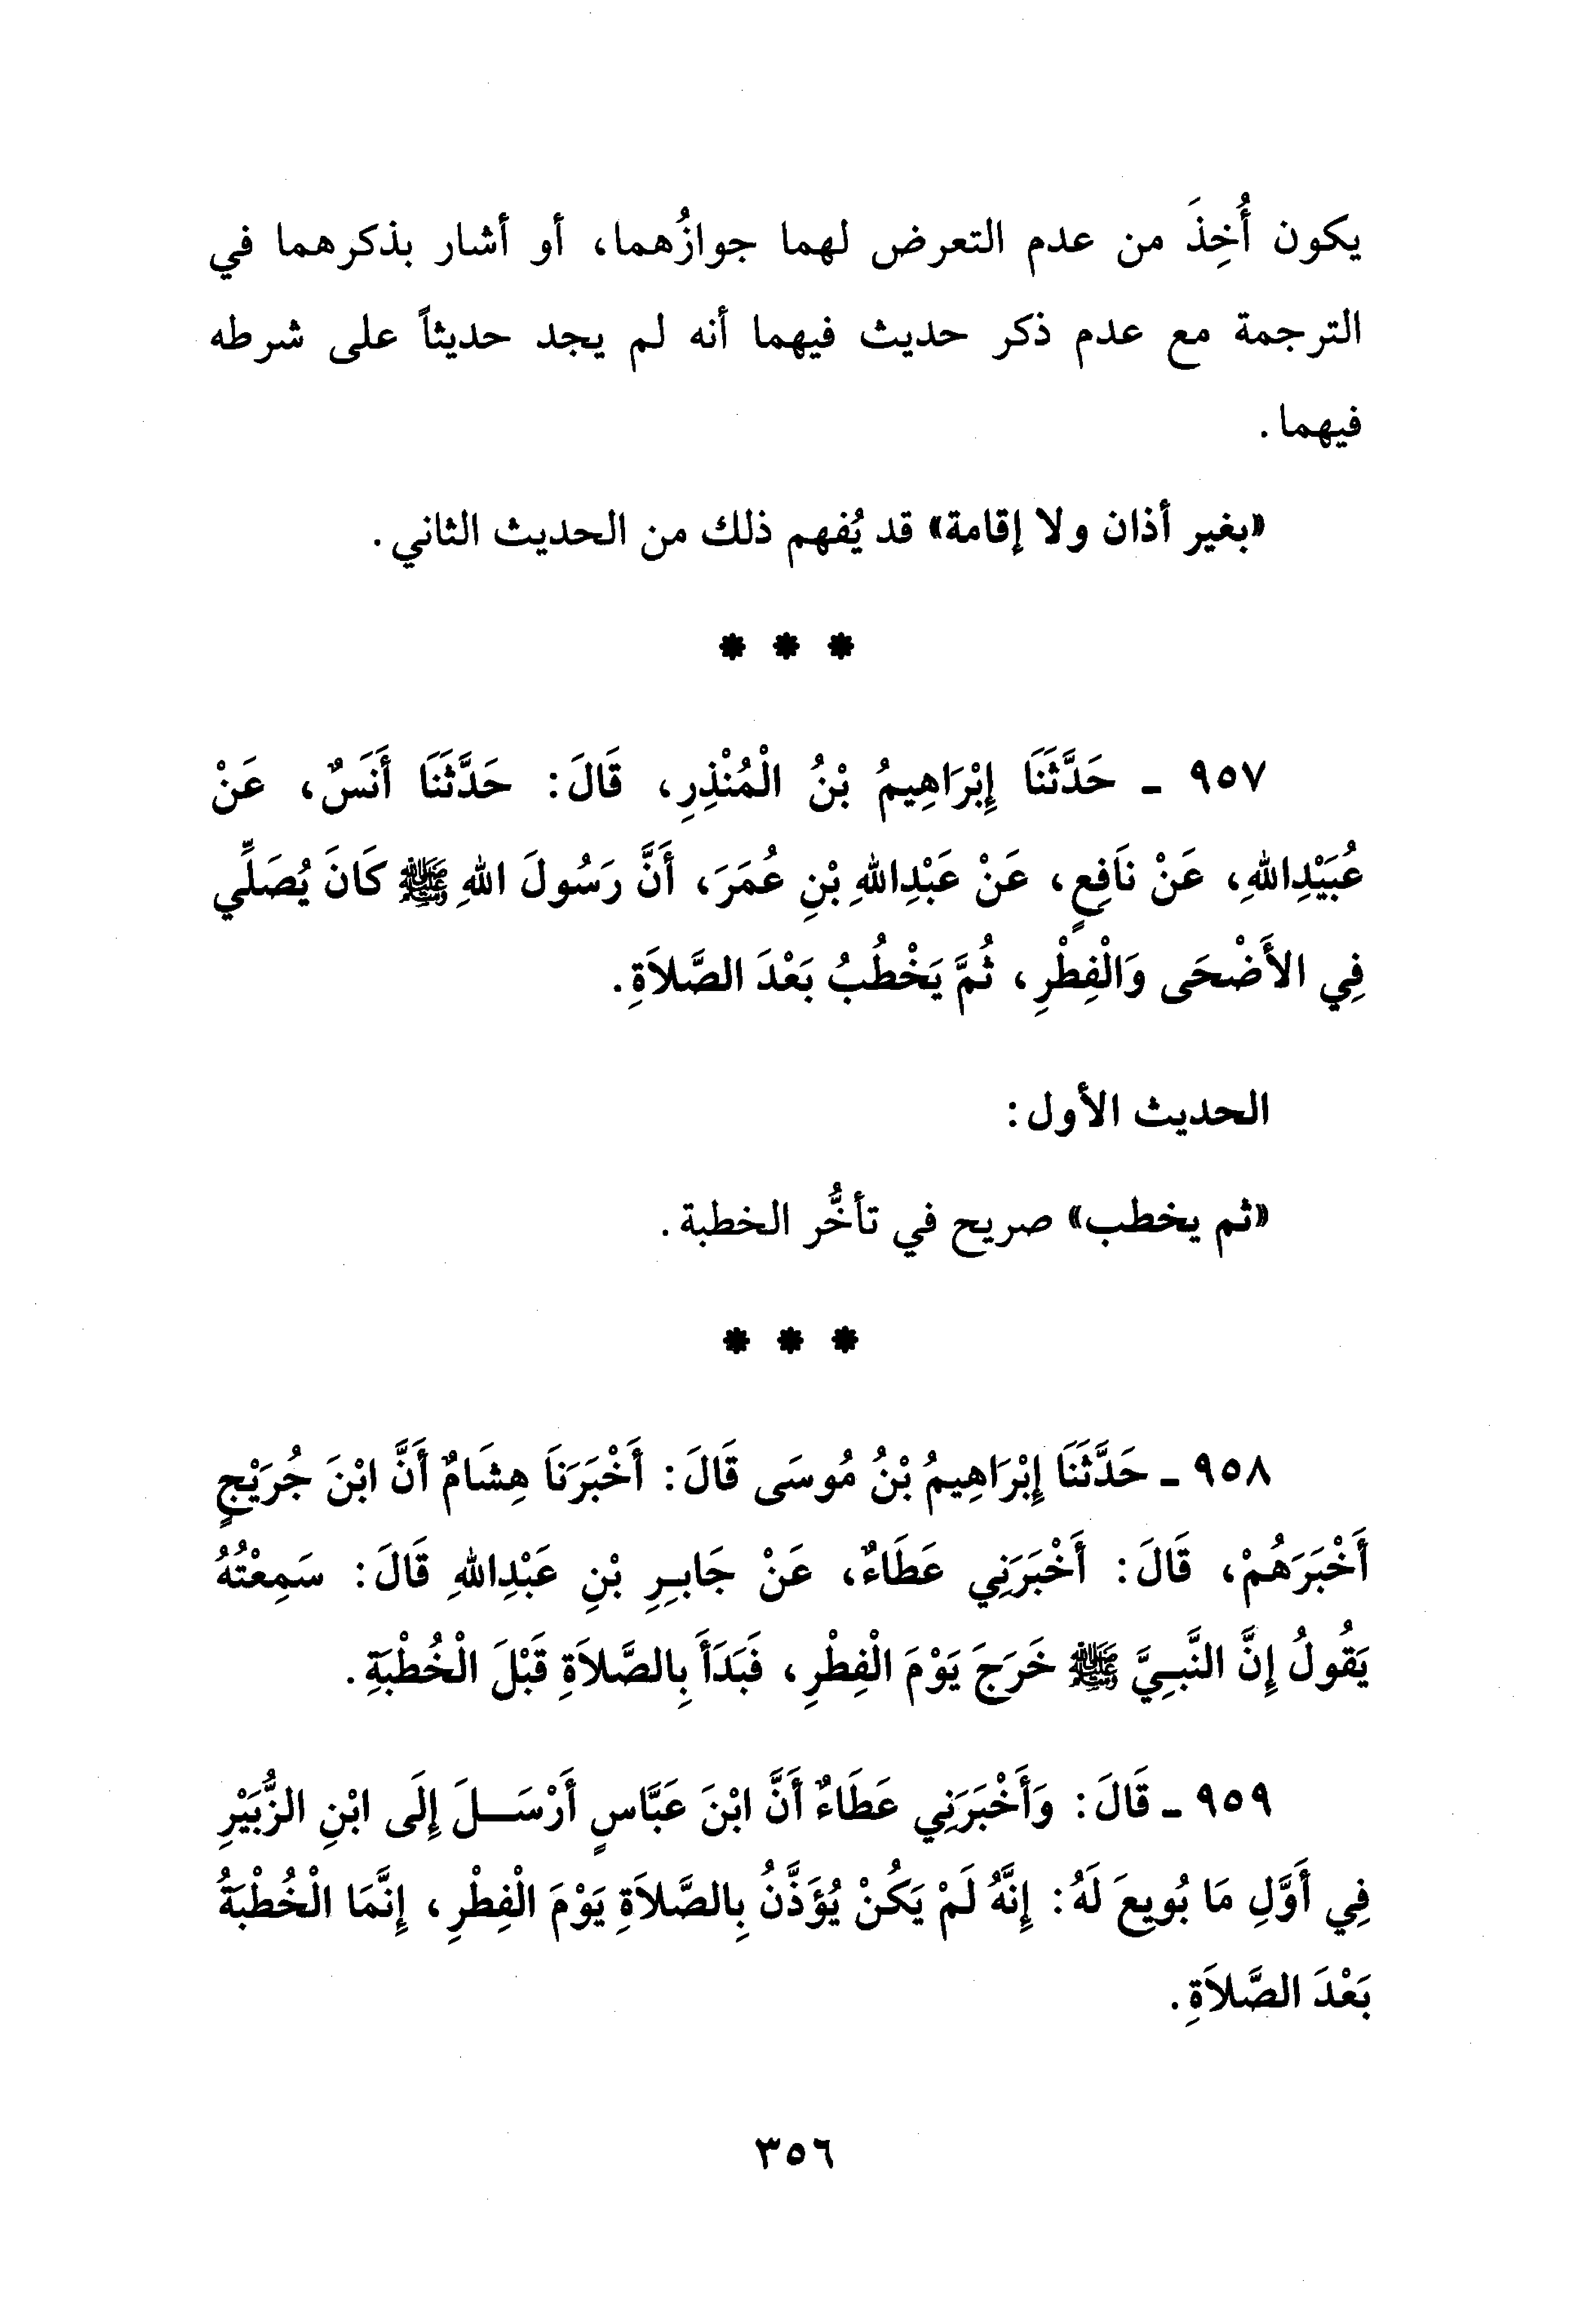 يكون أُخِذَ من عدم التعرض لهما جوازُهما، أو أشار بذكرهما في
الترجمة مع عدم ذكر حديث فيهما أنه لم يجد حديثاً على شرطه
فيهما.
«بغير أذان ولا إقامة» قد يُفهم ذلك من الحديث الثاني.
* * *
٩٥٧ ـ حَدَّثَنَا إِبْرَاهِيمُ بْنُ الْمُنْذِرِ، قَالَ: حَدَّثَنَا أَنَسٌ، عَنْ
عُبَيْدِاللهِ، عَنْ نَافِعٍ، عَنْ عَبْدِاللهِ بْنِ عُمَرَ، أَنَّ رَسُولَ اللهِ ﷺ كَانَ يُصَلِّي
فِي الأَضْحَى وَالْفِطْرِ، ثُمَّ يَخْطُبُ بَعْدَ الصَّلاَةِ.
الحديث الأول:
«ثم يخطب» صريح في تأخُّر الخطبة.
* * *
٩٥٨ ـ حَدَّثَنَا إِبْرَاهِيمُ بْنُ مُوسَى قَالَ: أَخْبَرَنَا هِشَامٌ أَنَّ ابْنَ جُرَيْجٍ
أَخْبَرَهُمْ، قَالَ: أَخْبَرَنِي عَطَاءٌ، عَنْ جَابِرِ بْنِ عَبْدِاللهِ قَالَ: سَمِعْتُهُ
يَقُولُ إِنَّ النَّبِيَّ ﷺ خَرَجَ يَوْمَ الْفِطْرِ، فَبَدَأَ بِالصَّلاَةِ قَبْلَ الْخُطْبَةِ.
٩٥٩ ـ قَالَ: وَأَخْبَرَنِي عَطَاءٌ أَنَّ ابْنَ عَبَّاسٍ أَرْسَـلَ إِلَى ابْنِ الزُّبَيْرِ
فِي أَوَّلِ مَا بُويِعَ لَهُ: إِنَّهُ لَمْ يَكُنْ يُؤَذَّنُ بِالصَّلاَةِ يَوْمَ الْفِطْرِ، إِنَّمَا الْخُطْبَةُ
بَعْدَ الصَّلاَةِ.
٣٥٦